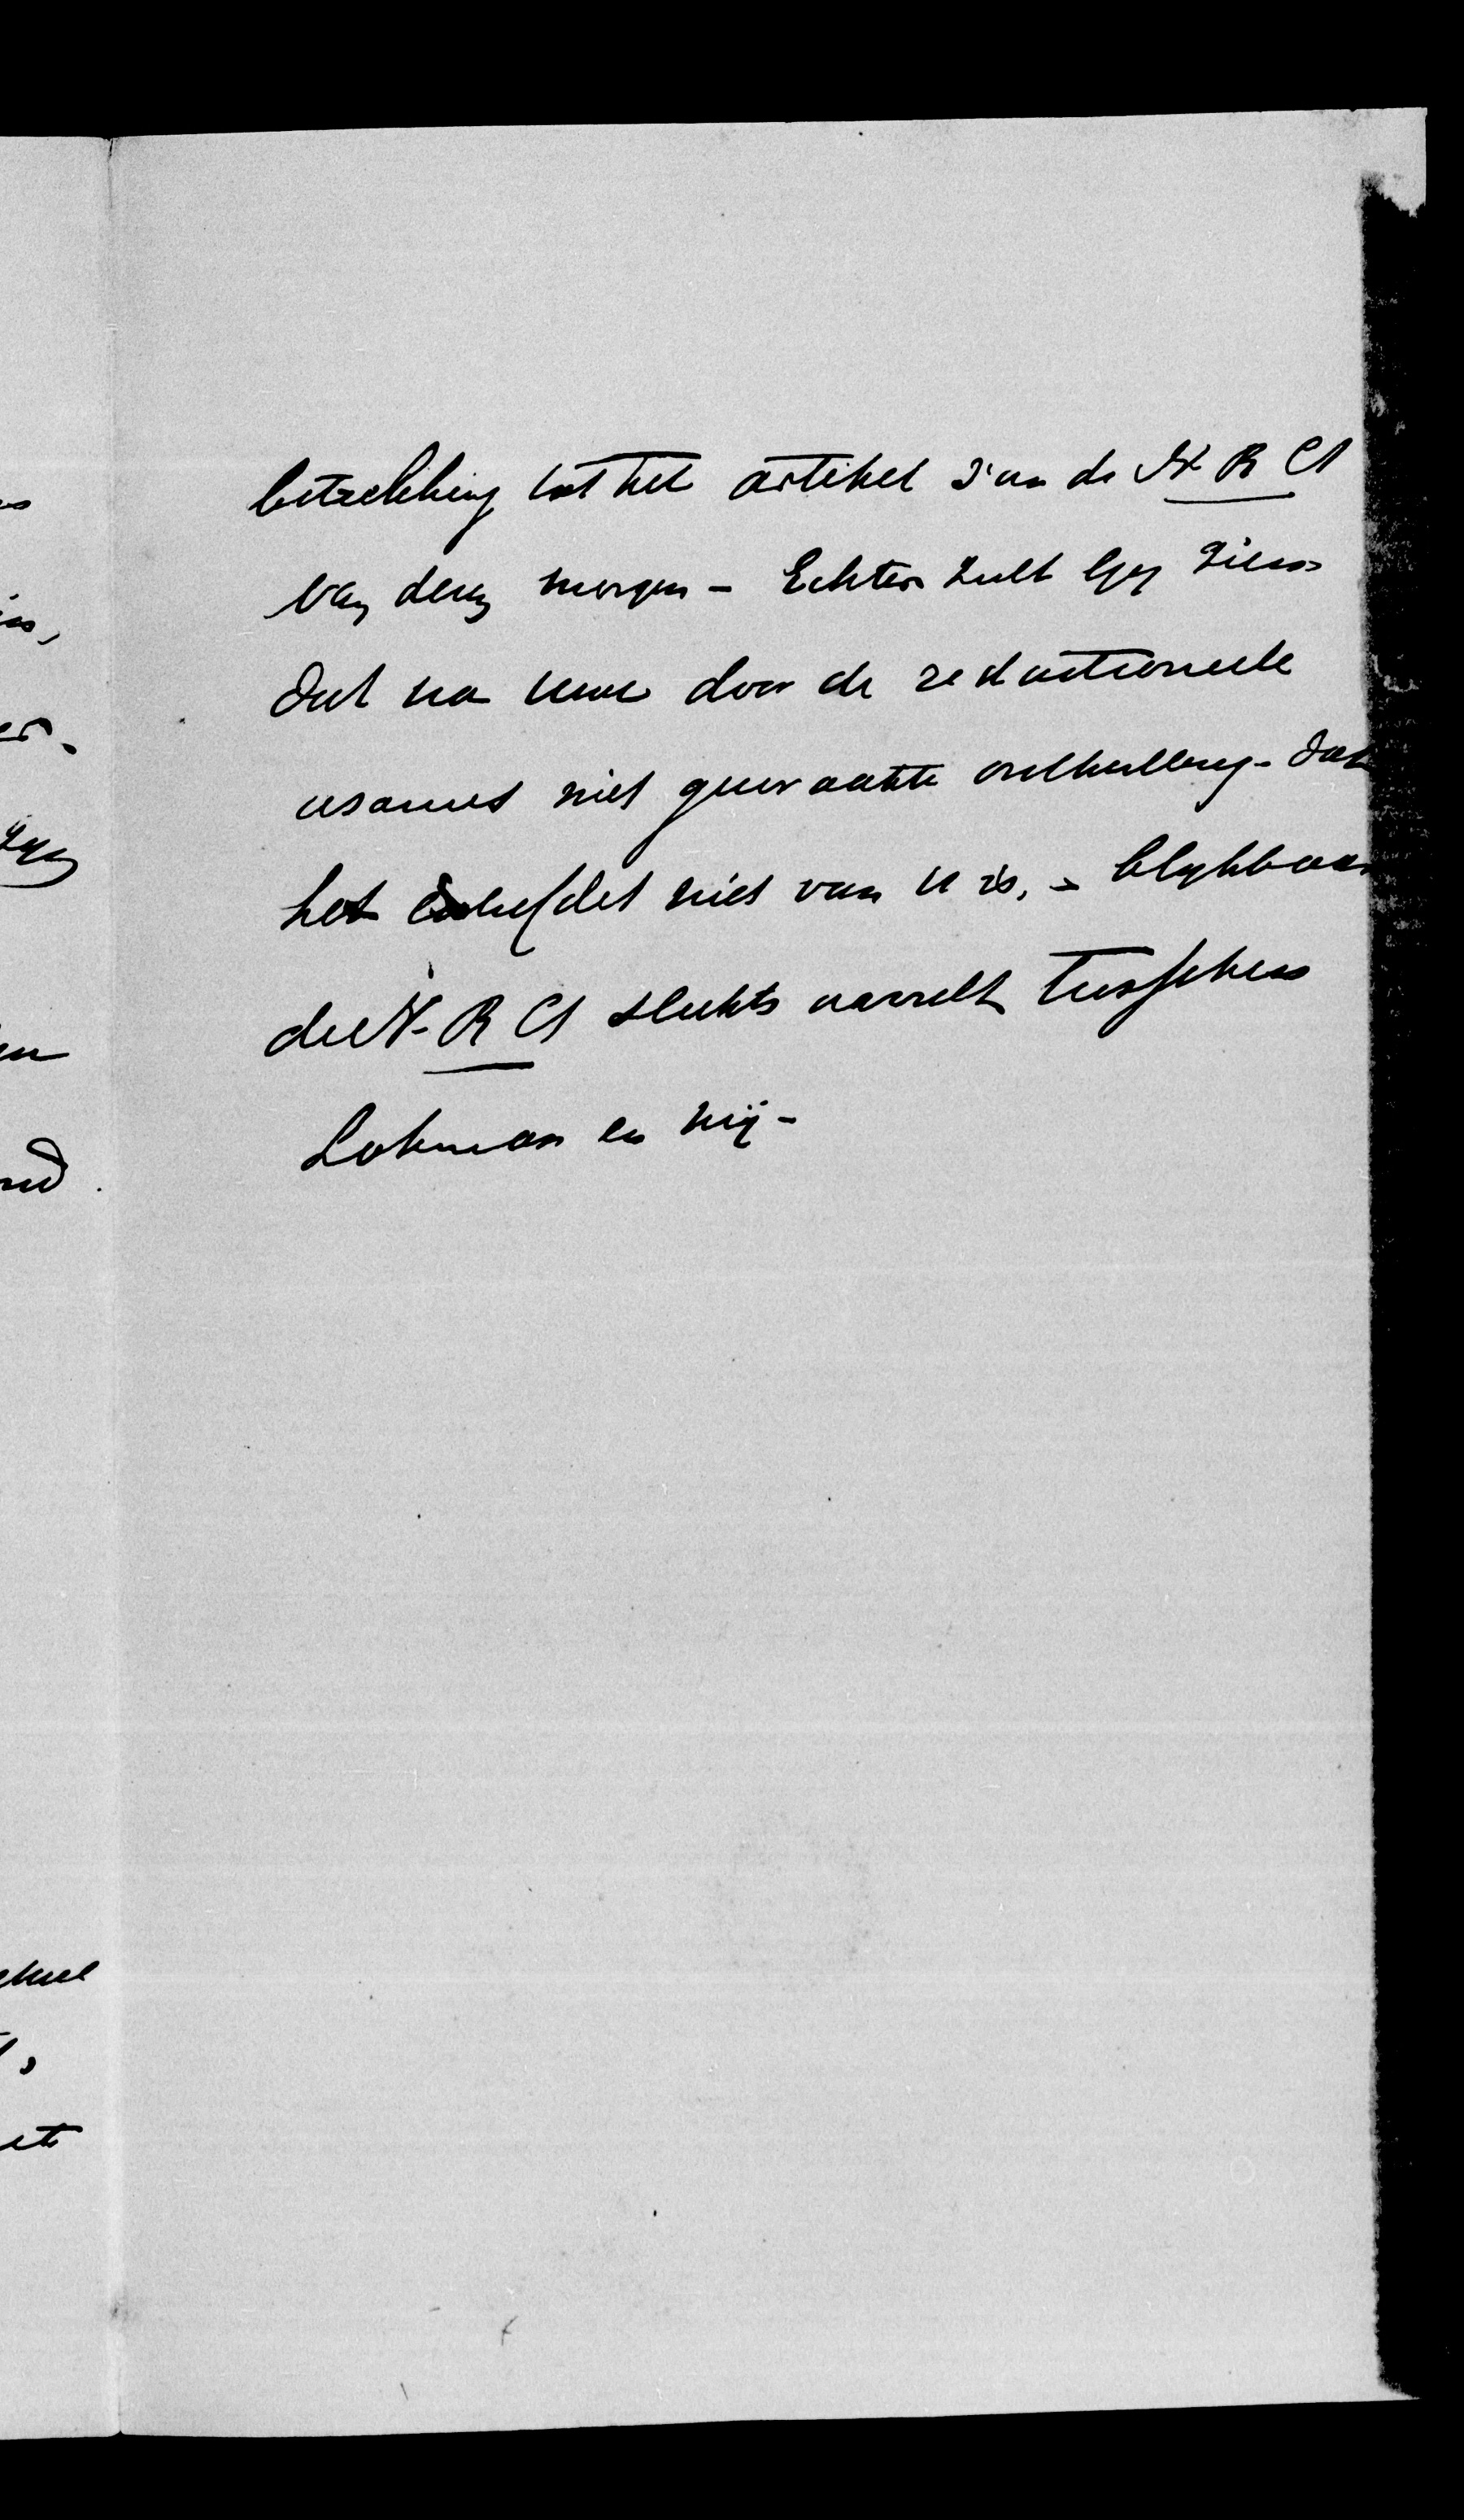 betrekking tot het artikel van de N R Ct
van dezen morgen - Echter zult Gij zien
dat na Uwe door de redactioneele
usances niet gewraakte onthulling - dat
het hoofdet niet van U is, - blykbaar
de N. R Ct slechts aarzelt tusschen
Lohman en mij -